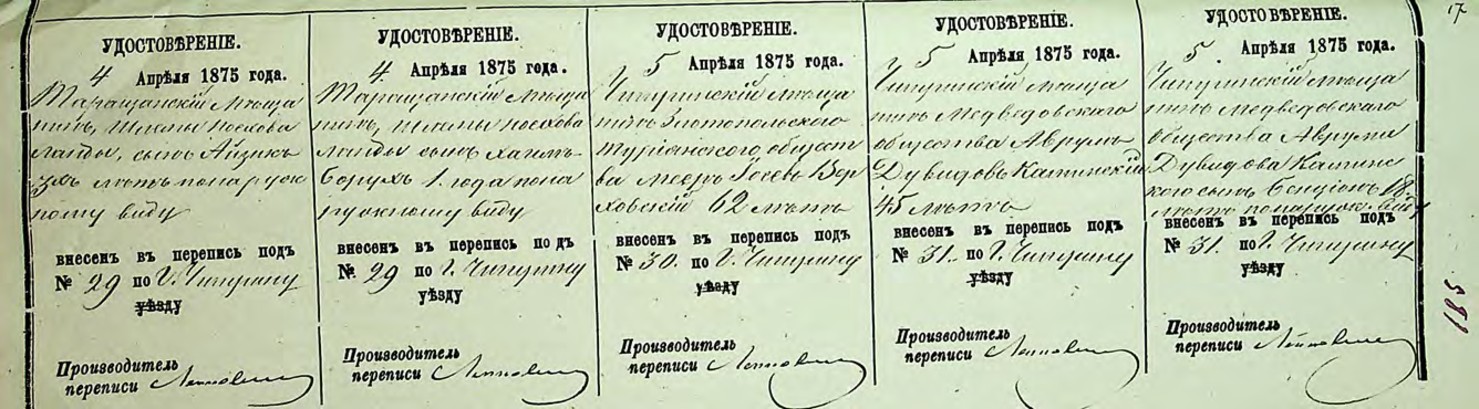 17
УДОСТОВѢРЕНІЕ.
4 Апрѣля 1875 года.
Таращанскій мѣща
нинъ, Шлемы
Ланды, сынъ Айзикъ
3хъ лѣтъ по наруж
ному виду
внесенъ въ перепись подъ
№ 29 по г. Чигирину
уѣзду
Производитель
переписи
УДОСТОВѢРЕНІЕ.
4 Апрѣля 1875 года.
Таращанскій мѣща
нинъ, Шлемы
Ланды сынъ Хаимъ
Борухъ 1. года по на
ружному виду
внесенъ въ перепись подъ
№ 29 по г. Чигирину
уѣзду
Производитель
переписи
УДОСТОВѢРЕНІЕ.
5 Апрѣля 1875 года.
Чигиринскій мѣща
нинъ Златопольского
Туріянского общест
ва Мееръ
62 лѣтъ
внесенъ въ перепись подъ
№ 30. по г. Чигирину
уѣзду
Производитель
переписи
УДОСТОВѢРЕНІЕ.
5 Апрѣля 1875 года.
Чигиринскій мѣща
нинъ Медведовскаго
общества Аврумъ
Дувидовъ Каминскій
45 лѣтъ
внесенъ въ перепись подъ
№ 31. по г. Чигирину
уѣзду
Производитель
переписи
УДОСТОВѢРЕНІЕ.
5 Апрѣля 1875 года.
Чигиринскій мѣща
нинъ Медведовскаго
общества Аврума
Дувидова Камине
кого сынъ, Бенціонъ 18.
лѣтъ по наруж. виду
внесенъ въ перепись подъ
№ 31. по г. Чигирину
уѣзду
Производитель
переписи